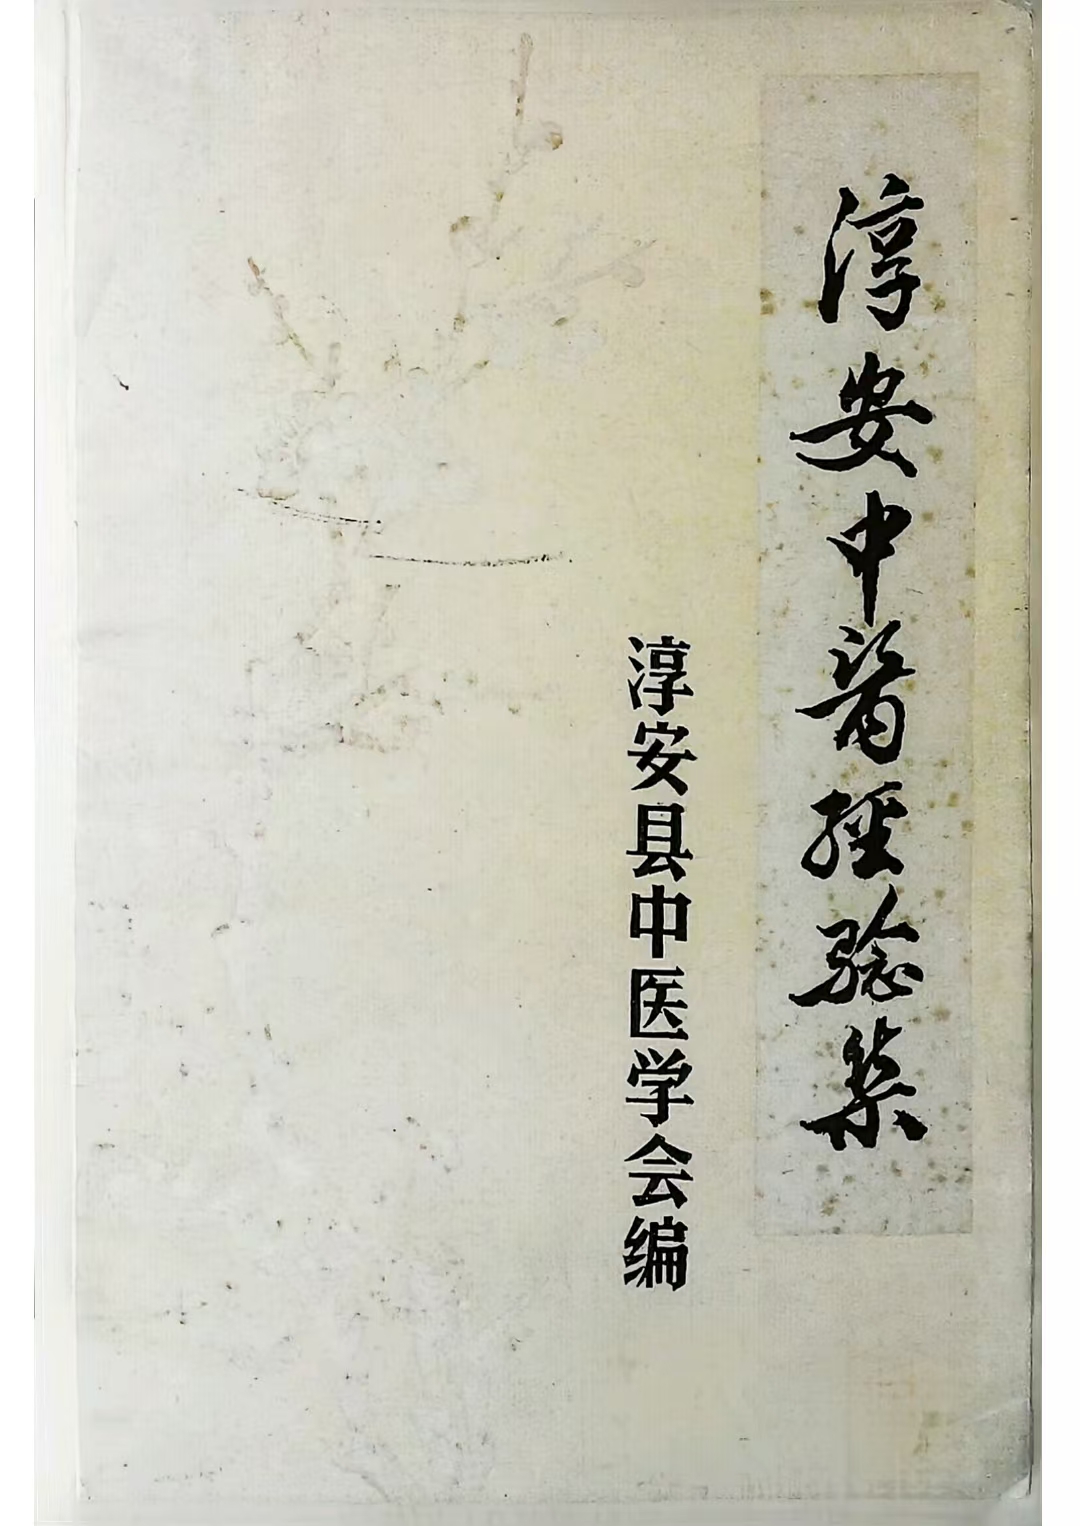 淳安中醫经验集
淳安县中医学会编